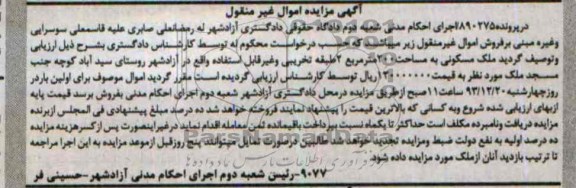 آگهی مزایده اموال غیر منقول
در پرونده ۸۹۰۲۷۵ اجرای احکام مدنی شعبه دوم دادگاه حقوقی دادگستری آزادشهر له رمضانعلی صابری علیه قاسمعلی سوسرایی
وغیره مبنی برفروش اموال غیرمنقول زیر میباشد که حسب درخواست محکوم له توسط کارشناس دادگستری بشرح ذیل ارزیابی
وتوصیف گردید ملک مسکونی به مساحت مترمربع ۲طبقه تخریبی وغیرقابل استفاده واقع در آزادشهر روستای سید آباد کوچه جنب
مسجد ملک مورد نظر به قیمت ریال توسط کارشناس ارزیابی گردیده است مقرر گردید اموال موصوف برای اولین باردر
روزچهارشنبه ۹۳/۱۲/۲۰ ساعت ۱۱صبح ازطریق مزایده درمحل دادگستری آزادشهر شعبه دوم اجرای احکام مدنی بفروش برسد قیمت پایه
ازبهای ارزیابی شده شروع وبه کسانی که بالاترین قیمت را پیشنهاد نمایند فروخته خواهد شد ده درصد مبلغ پیشنهادی فی المجلس ازبرنده
مزایده دریافت ونامبرده مکلف است حداکثر تا یکماه نسبت به پرداخت باقیمانده ثمن معامله اقدام نماید درغیراینصورت پس ازکسرهزینه مزایده
ده درصد اولیه به نفع دولت ضبط ومزایده تجدید خواهد شد طالبین درصورت تمایل میتوانند پنج روزقبل ازموعد مزایده به این اجرا مراجعه
تا ترتیب بازدید آنان ازملک مورد مزایده داده شود.
۹۰۷۷-رئیس شعبه دوم اجرای احکام مدنی آزادشهر-حسینی فر
ParsNamadData